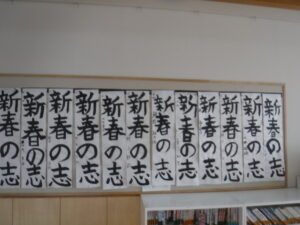 新春の志
新春の志
新春の志
新春の志
新春の志
新春の志
新春の志
新春の志
新春の志
新春の志
新春の志
新春の志